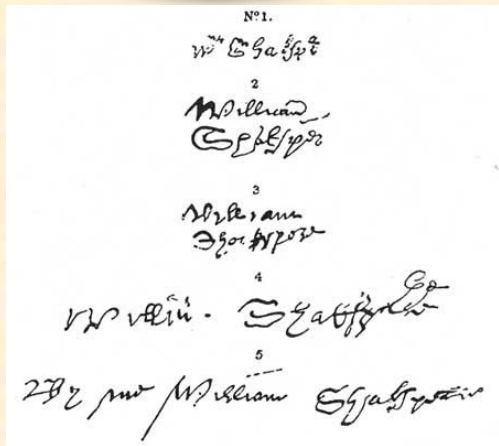 Nº1.
Wm Shakspē
2
William
Shakspēr
3
William
Shakspere
4
Willm. Shakspere
5
By me William Shakspeare